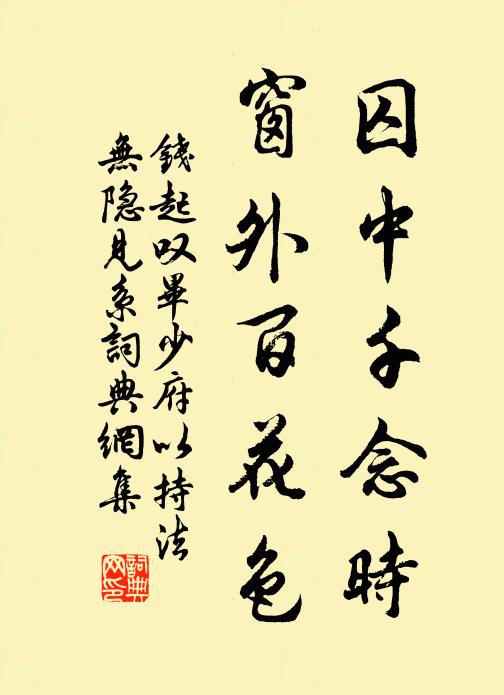 囚中千念時
窗外百花色
錢起叹畢少府以持法
無隐見系詞典網集
詞典网印